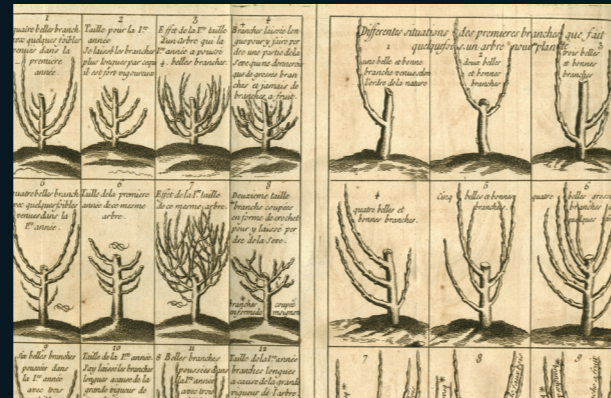 1
quatre belles branch
avec quelques foibles
venues dans la
premiere
année.
2
Taille pour la 1.re
année
Je laisse les branches
plus longues par ce qu
il est fort vigoureux
3
Effet de la 1.re taille
d'un arbre que la
1.re année a poussé
4. belles branches.
4
Branches laissée lon
gue pour y faire per
dre une partie de la
Seve qui ne donneroit
que de grosses bran
ches et jamais de
branches a fruit.
5
quatre belles branch
avec quelques foibles
venues dans la
1.re année.
6
Taille de la premiere
année de ce mesme
arbre.
7
Effet de la 1.re taille
de ce mesme arbre.
8
Deuxieme taille
branche coupées
en forme de crochet
pour y laisser per
dre de la Seve.
branches coupée
en forme de moignon
9
Six belles branches
poussées dans
la 1.re année
avec trois
10
Taille de la 1.re année.
J'ay laissé les branches
longues a cause de la
grande vigueur de
11
8 Belles branches
poussées dans
la 1.re année
avec trois
12
Taille de la 1.re année
branches longues
a cause de la grande
vigueur de l'arbre
Differentes situations des premieres branches que fait
quelquefois un arbre nouv plante
1
une belle et bonne
branche venue dans
l'ordre de la nature
2
deux belles
et bonnes
branches
3
trois belles
et bonnes
branches
quatre belles et
bonnes branches.
5
Cinq belles et bonnes
branches.
6
quatre belles grosses
branches
quelques
7
8
9